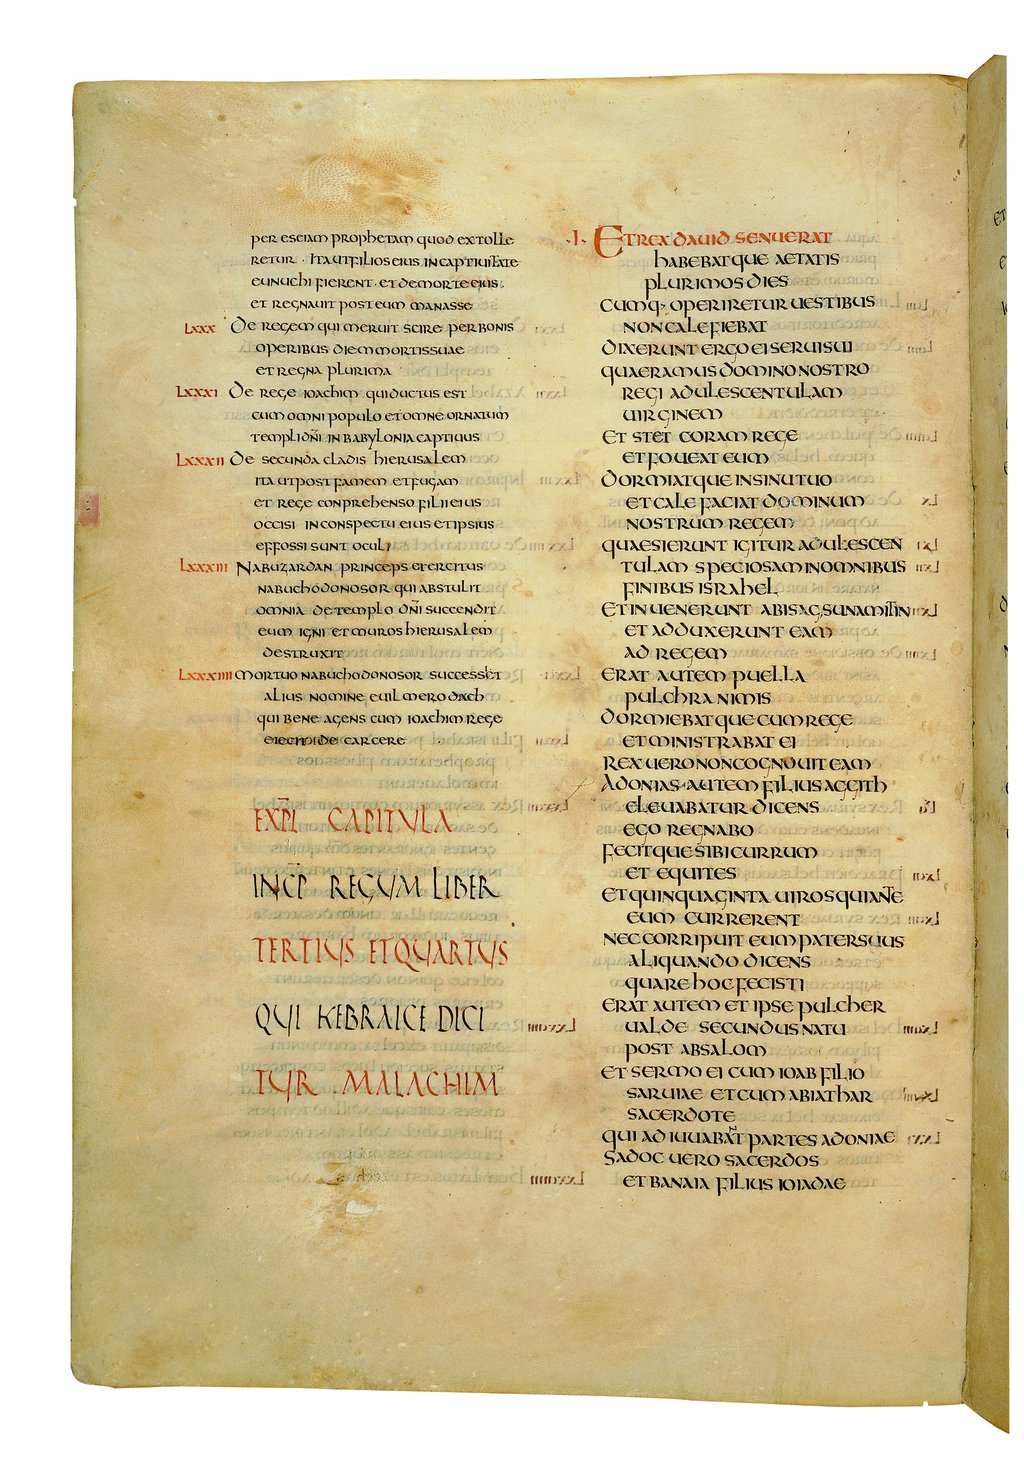 PER ESEIAM PROPHETAM QUOD EXTOLLE
RETUR · ITA UT FILIOS EIUS IN CAPTIUITATE
EUNUCHI FIERENT · ET DE MORTE EIUS ·
ET REGNAUIT POST EUM MANASSE
LXXX DE REGEM QUI MERUIT SCIRE PER BONIS
OPERIBUS DIEM MORTIS SUAE
ET REGNA PLURIMA
LXXXI DE REGE IOACHIM QUI DUCTUS EST
CUM OMNI POPULO ET OMNE ORNATUM
TEMPLI DNI IN BABYLONIA CAPTIUUS
LXXXII DE SECUNDA CLADIS HIERUSALEM
ITA UT POST FAMEM ET FUGAM
ET REGE CONPREHENSO FILII EIUS
OCCISI IN CONSPECTU EIUS ET IPSIUS
EFFOSSI SUNT OCULI
LXXXIII NABUZARDAN PRINCEPS EXERCITUS
NABUCHODONOSOR QUI ABSTULIT
OMNIA DE TEMPLO DNI SUCCENDIT
EUM IGNI ET MUROS HIERUSALEM
DESTRUXIT
LXXXIIII MORTUO NABUCHODONOSOR SUCCESSET
ALIUS NOMINE EUILMERODACH
QUI BENE AGENS CUM IOACHIM REGE
EIECIT DE CARCERE
EXPL CAPITULA
INCP REGUM LIBER
TERTIUS ET QUARTUS
QUI HEBRAICE DICI
TUR MALACHIM
·I· ET REX DAUID SENUERAT
HABEBATQUE AETATIS
PLURIMOS DIES
CUMQ· OPERIRETUR UESTIBUS
NON CALEFIEBAT
DIXERUNT ERGO EI SERUI SUI
QUAERAMUS DOMINO NOSTRO
REGI ADULESCENTULAM
UIRGINEM
ET STET CORAM REGE
ET FOUEAT EUM
DORMIATQUE IN SINU TUO
ET CALEFACIAT DOMINUM
NOSTRUM REGEM
QUAESIERUNT IGITUR ADULESCEN
TULAM SPECIOSAM IN OMNIBUS
FINIBUS ISRAHEL
ET INUENERUNT ABISAG SUNAMITIN
ET ADDUXERUNT EAM
AD REGEM
ERAT AUTEM PUELLA
PULCHRA NIMIS
DORMIEBATQUE CUM REGE
ET MINISTRABAT EI
REX UERO NON COGNOUIT EAM
ADONIAS · AUTEM FILIUS AGGITH
ELEUABATUR DICENS
EGO REGNABO
FECITQUE SIBI CURRUM
ET EQUITES
ET QUINQUAGINTA UIROS QUI ANTE
EUM CURRERENT
NEC CORRIPUIT EUM PATER SUUS
ALIQUANDO DICENS
QUARE HOC FECISTI
ERAT AUTEM ET IPSE PULCHER
UALDE SECUNDUS NATU
POST ABSALOM
ET SERMO EI CUM IOAB FILIO
SARUIAE ET CUM ABIATHAR
SACERDOTE
QUI ADIUUABANT PARTES ADONIAE
SADOC UERO SACERDOS
ET BANAIA FILIUS IOIADAE